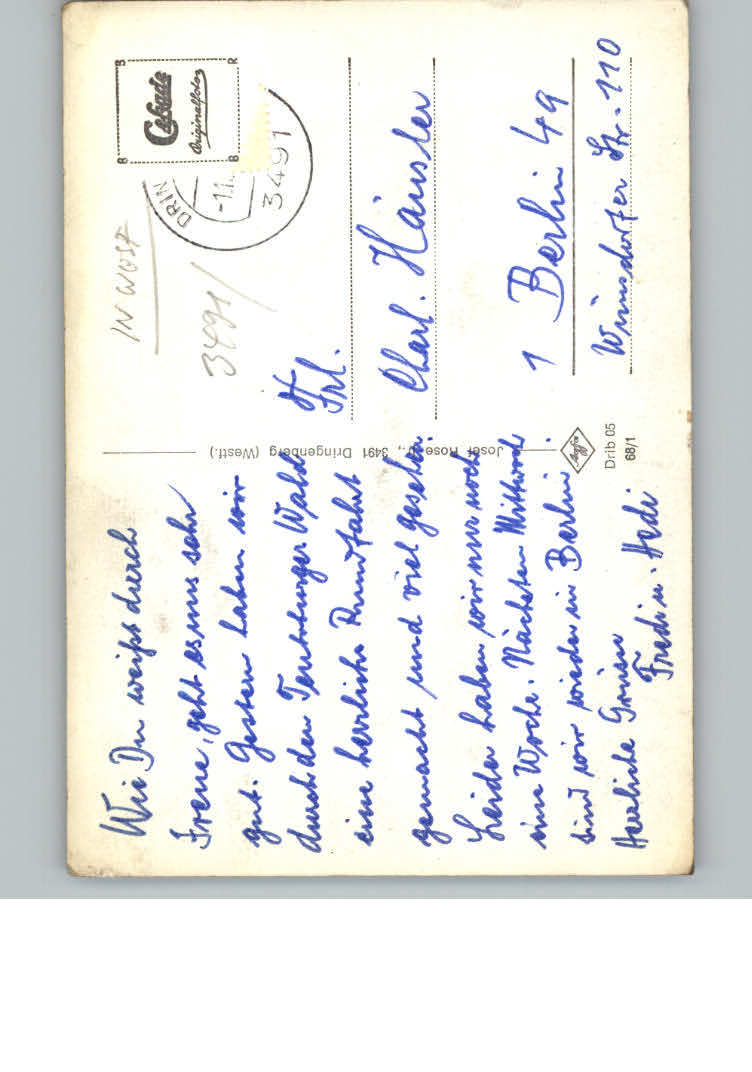 Wie Du weißt durch
Irene, geht es uns sehr
gut. Gestern haben wir
durch den Teutoburger Wald
eine herrliche Rundfahrt
gemacht und viel gesehen.
Leider haben wir nur noch
eine Woche. Nächsten Mittwoch
sind wir wieder in Berlin.
Herzliche Grüße
Fredi u. Hedi
Josef Rose, 3491 Dringenberg (Westf.)
Agfa
Drib 05
68/1
B B R B
Cekade
Originalfoto
DRIN
-1.1
3491
IN WOST
3491/
Frl.
Charl. Häusler
1 Berlin 49
Wünsdorfer Str. 110